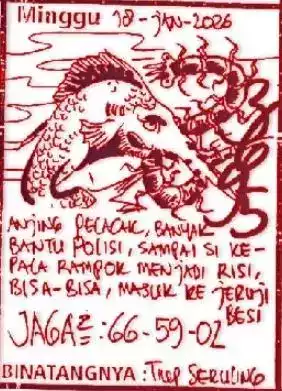 Minggu 18-JAN-2026
ANJING PELACAK, BANYAK
BANTU POLISI, SAMPAI SI KE-
PALA RAMPOK MENJADI RISI,
BISA-BISA, MASUK KE JERUJI
BESI
JAGA2 : 66-59-02
BINATANGNYA : TIKUP SERULING